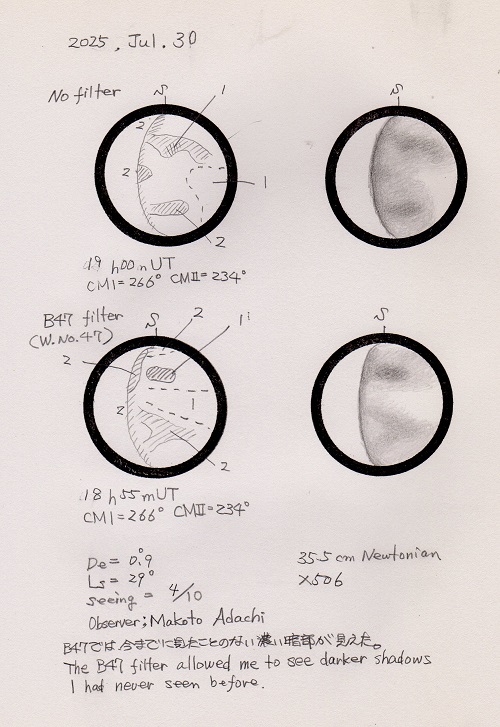 2025, Jul. 30
No filter
S
1
S
2
2
1
2
19 h00 m UT
CMI = 266° CMII = 234°
B47 filter
(W. No. 47)
S
2
1
S
2
2
1
2
18 h 55 m UT
CMI = 266° CMII = 234°
De = 0.°9
Ls = 29°
seeing = 4/10
35.5 cm Newtonian
×506
Observer; Makoto Adachi
B47では今までに見たことのない濃い暗部が見えた。
The B47 filter allowed me to see darker shadows
I had never seen before.